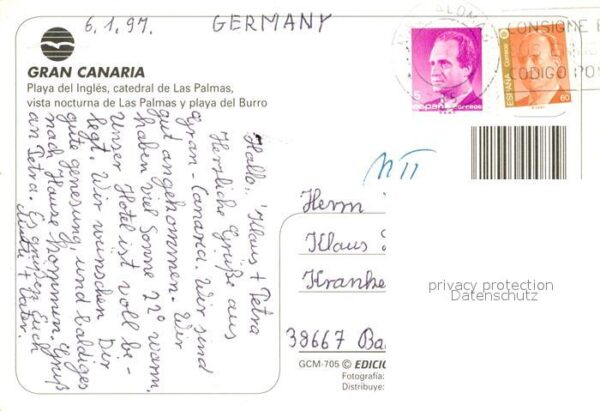 6.1.97. GERMANY
GRAN CANARIA
Playa del Inglés, catedral de Las Palmas,
vista nocturna de Las Palmas y playa del Burro
Hallo, Klaus + Petra
Herzliche Grüße aus
Gran-Canaria. Wir sind
gut angekommen. Wir
haben viel Sonne 22° warm,
Unser Hotel ist voll be-
legt. Wir wünschen Dir
gute genesung, und baldiges
nach Hause kommen. Gruß
an Petra. Es grüßen Euch
Mutti + Vater.
5
españa correos
ESPAÑA Correos
60
CONSIGNE E
CODIGO POS
Herrn
Klaus
Kranke
38667 Ba
privacy protection
Datenschutz
GCM-705 © EDICIO
Fotografía:
Distribuye: